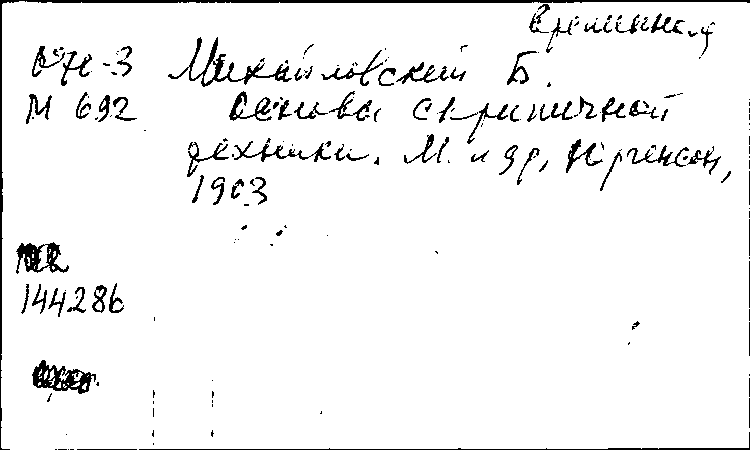 Временная
Михайловский Б.
М 692 Основы скрипичной
техники. М. и др, Юргенсон,
1903
144286